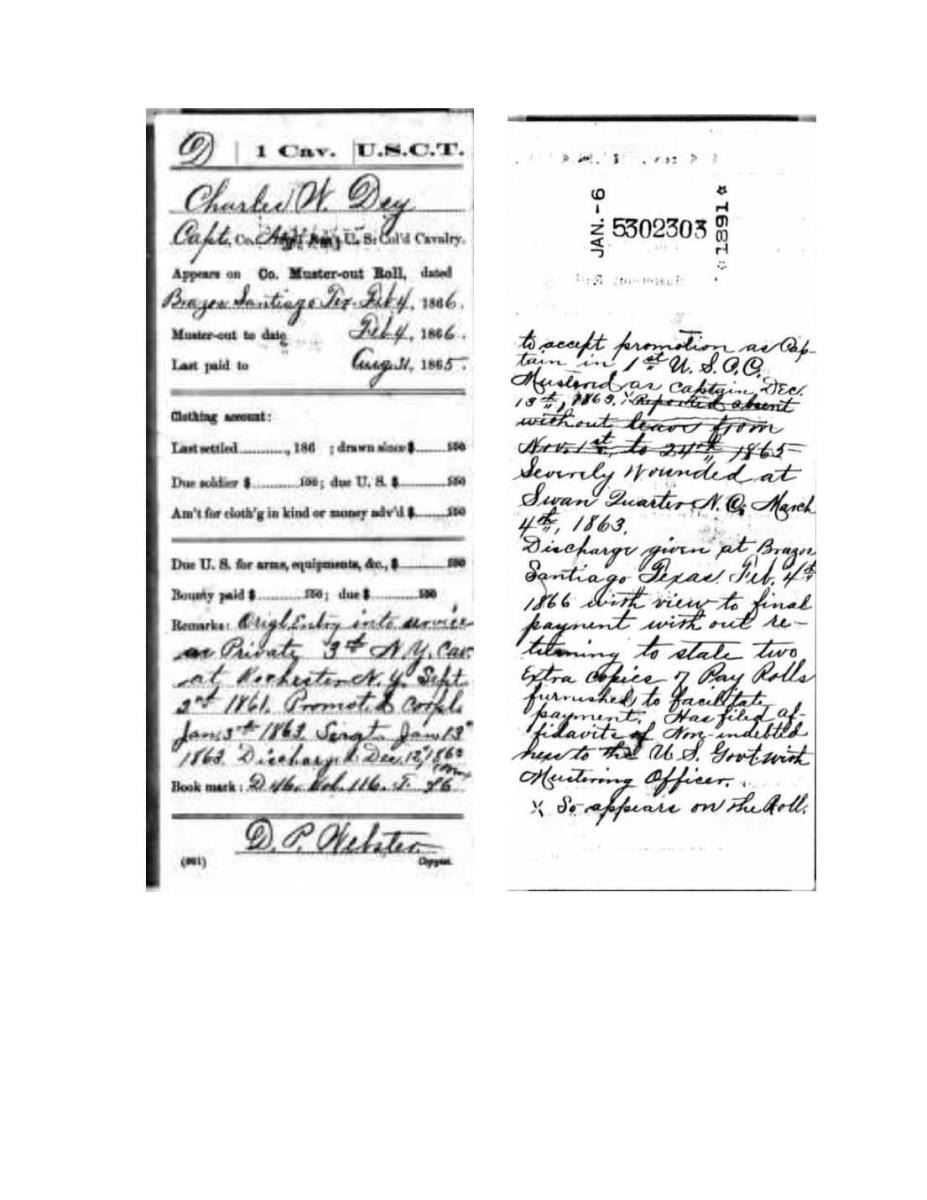 D | 1 Cav. | U.S.C.T.
Charles W. Dey
Capt., Co. A, U. S. Col'd Cavalry.
Appears on Co. Muster-out Roll, dated
Brazos Santiago Tex. Feb 4, 1866.
Muster-out to date Feb 4, 1866.
Last paid to Aug 31, 1865.
Clothing account:
Last settled............, 186 ; drawn since $........100
Due soldier $...........100; due U. S. $..........100
Am't for cloth'g in kind or money adv'd $........100
Due U. S. for arms, equipments, &c., $..........100
Bounty paid $...........100; due $...........100
Remarks: Orig Entry into service
as Private 3rd N.Y. Cav.
at Rochester N.Y. Sept
2nd 1861. Promoted Corpl.
Jan. 3rd 1863 Sergt Jan 13"
1863. Discharged Dec. 12", 1863
Book mark: D 46. Vol. 116. T. 86
D. P. Webster
(861) Copyist.
JAN.-6 5302303 1891
to accept promotion as Cap-
tain in 1st U. S. C. C.
Mustered as Captain Dec.
13th, 1863. Reported absent
without leave from
Nov. 1st, to 24th, 1865
Severely Wounded at
Swan Quarter N. C. March
4th, 1863.
Discharge given at Brazos
Santiago Texas Feb. 4th
1866 with view to final
payment with out re-
turning to state two
Extra Copies of Pay Rolls
furnished to facilitate
payment. Has filed af-
fidavits of Non-indebted
ness to the U S Govt with
Mustering Officer.
So appears on the Roll.